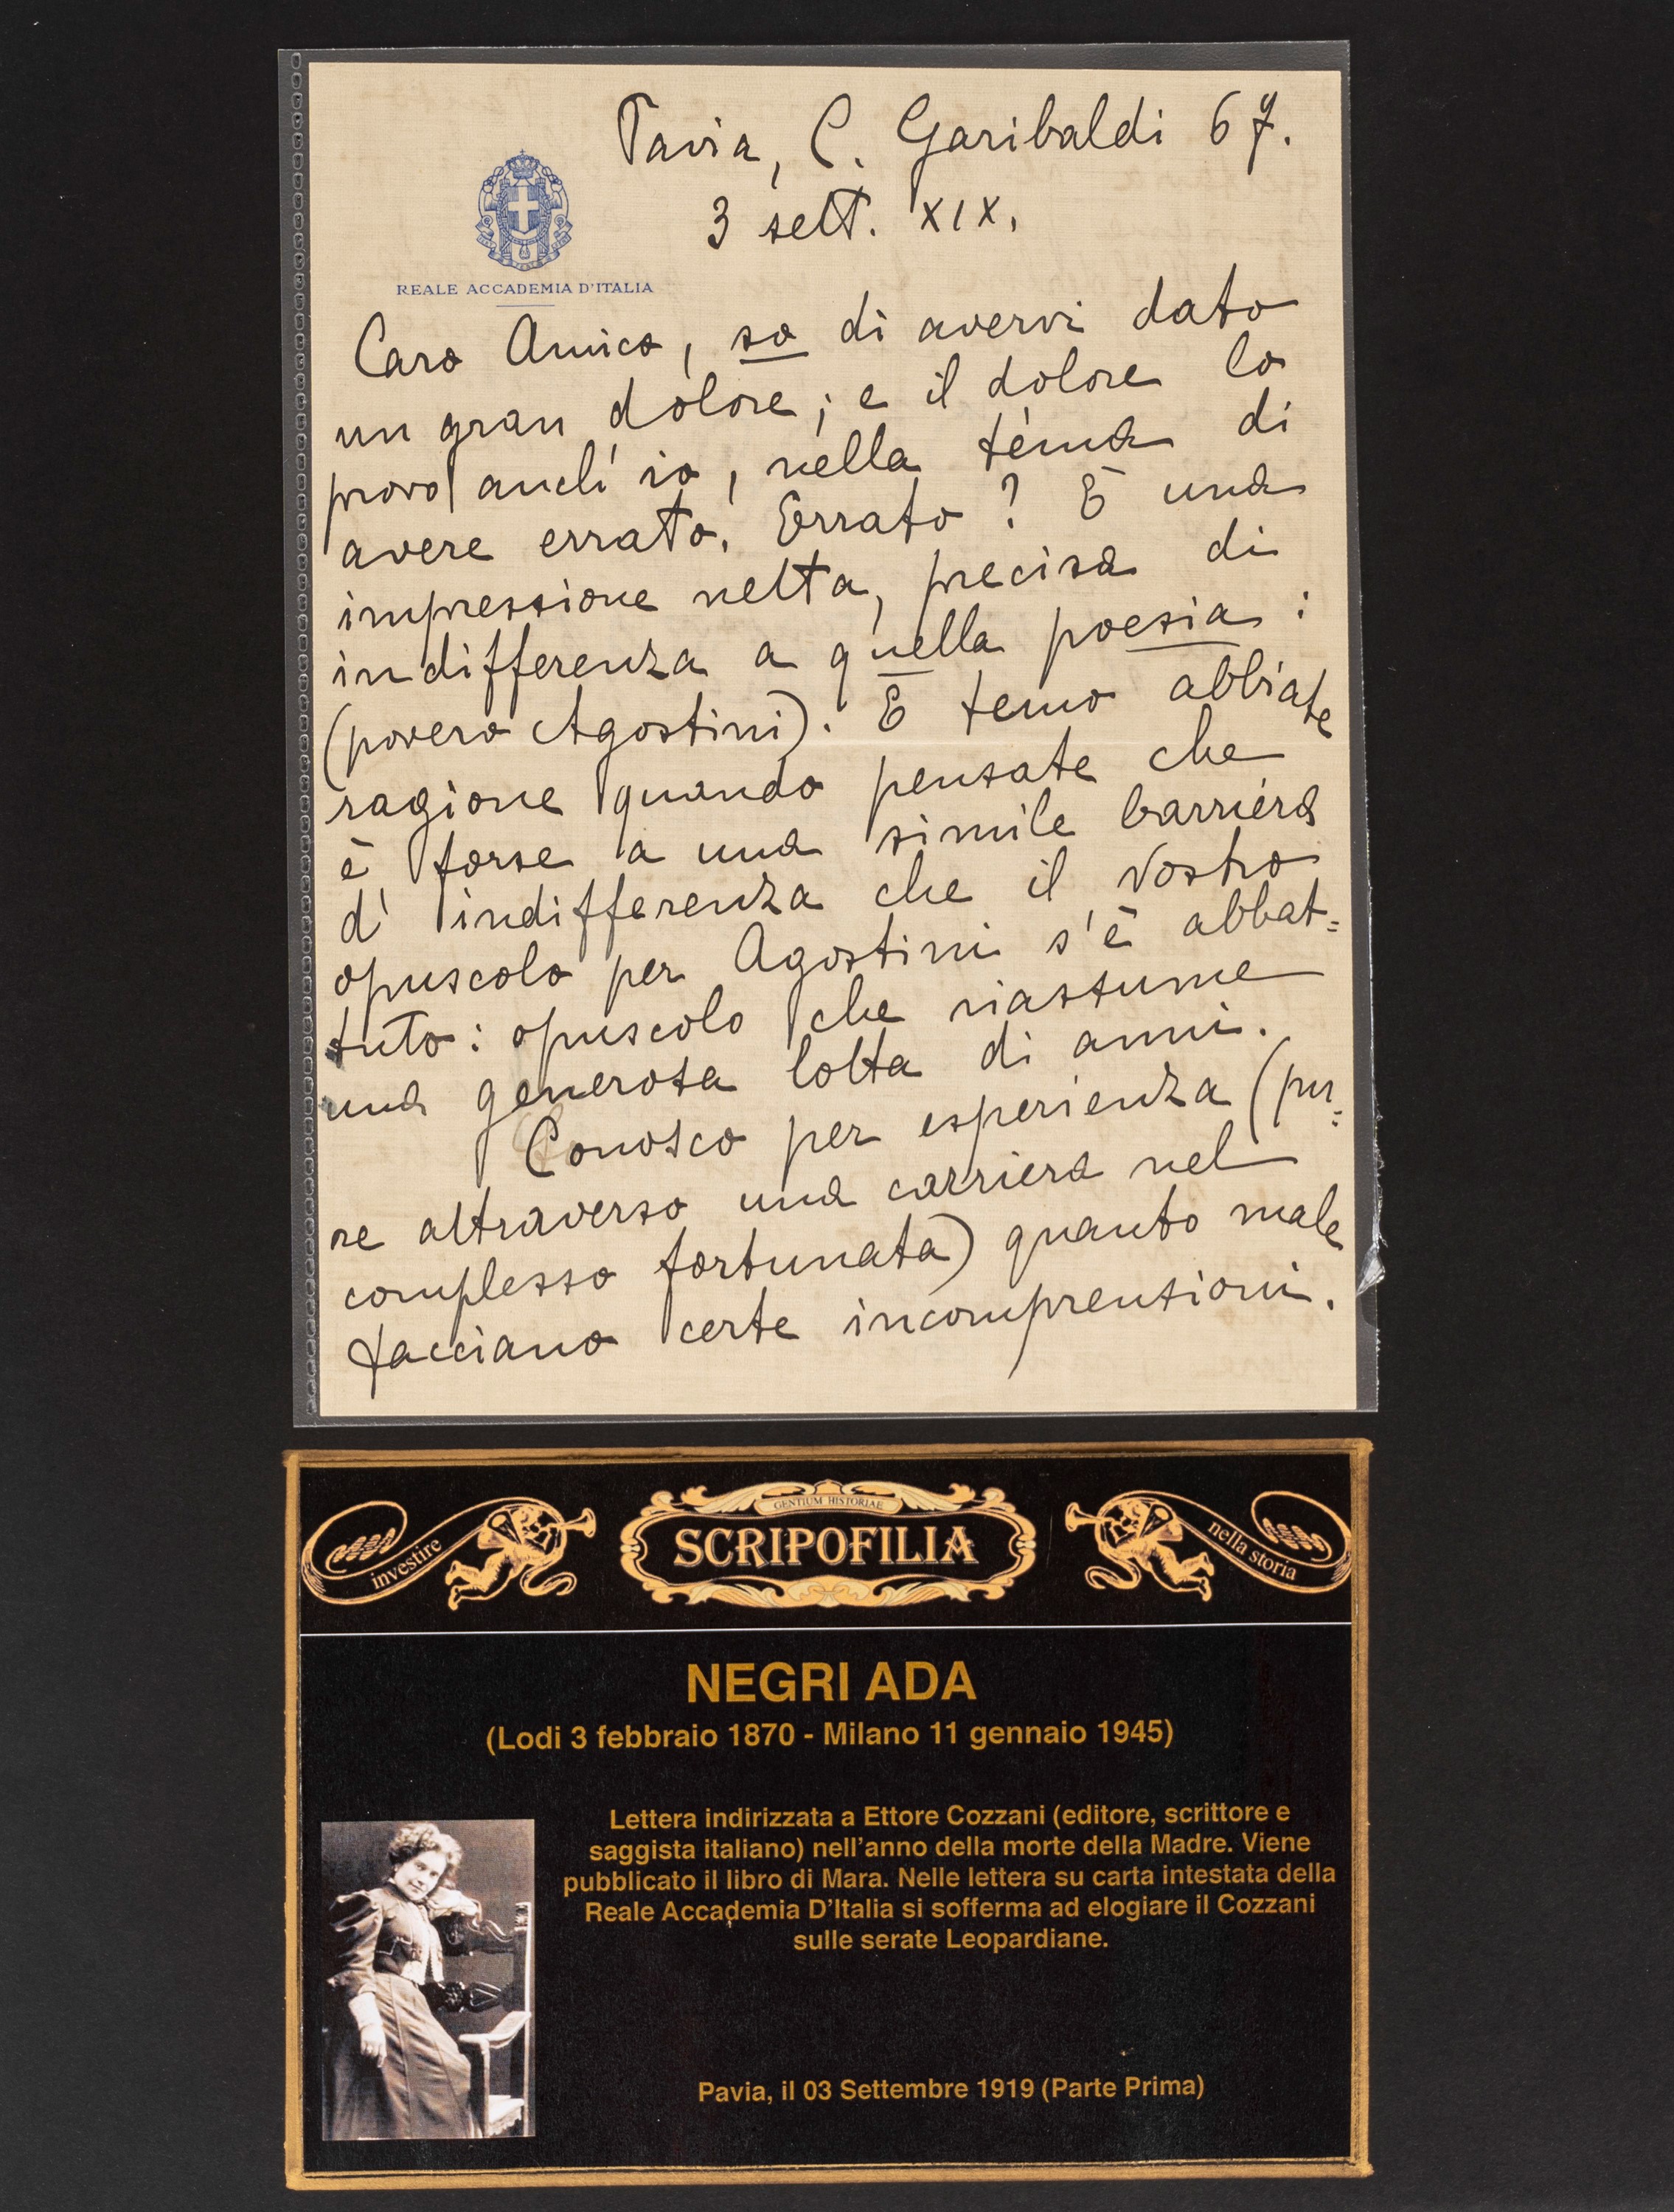 Pavia, C. Garibaldi 67.
3 sett. XIX.
REALE ACCADEMIA D'ITALIA
Caro Amico, so di avervi dato
un gran dolore; e il dolore lo
provo anch'io, nella téma di
avere errato. Errato? È una
impressione netta, precisa di
indifferenza a quella poesia:
(povero Agostini). E temo abbiate
ragione quando pensate che
è forse a una simile barriera
d'indifferenza che il Vostro
opuscolo per Agostini s'è abbat=
tuto: opuscolo che riassume
una generosa lotta di anni.
Conosco per esperienza (pu=
re attraverso una carriera nel
complesso fortunata) quanto male
facciano certe incomprensioni.
GENTIUM HISTORIAE
investire
SCRIPOFILIA
nella storia
NEGRI ADA
(Lodi 3 febbraio 1870 - Milano 11 gennaio 1945)
Lettera indirizzata a Ettore Cozzani (editore, scrittore e
saggista italiano) nell'anno della morte della Madre. Viene
pubblicato il libro di Mara. Nelle lettera su carta intestata della
Reale Accademia D'Italia si sofferma ad elogiare il Cozzani
sulle serate Leopardiane.
Pavia, il 03 Settembre 1919 (Parte Prima)